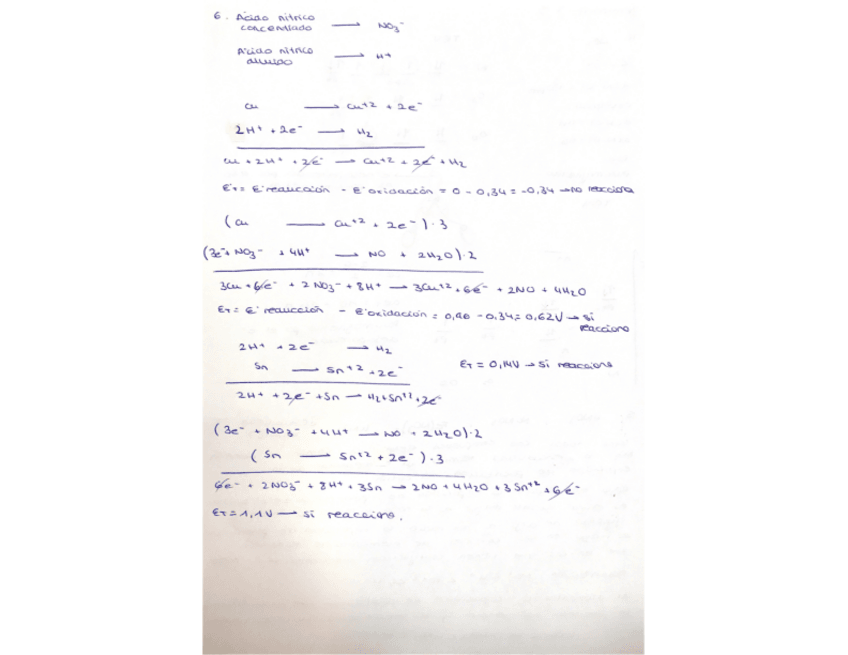 6. Ácido nítrico
concentrado → NO₃⁻
Ácido nítrico
diluido → H⁺
Cu → Cu⁺² + 2e⁻
2H⁺ + 2e⁻ → H₂
Cu + 2H⁺ + 2e⁻ → Cu⁺² + 2e⁻ + H₂
Eᴛ = E° reducción - E° oxidación = 0 - 0,34 = -0,34 → no reacciona
(Cu → Cu⁺² + 2e⁻)·3
(3e⁻ + NO₃⁻ + 4H⁺ → NO + 2H₂O)·2
3Cu + 6e⁻ + 2NO₃⁻ + 8H⁺ → 3Cu⁺² + 6e⁻ + 2NO + 4H₂O
Eᴛ = E° reducción - E° oxidación = 0,96 - 0,34 = 0,62V → si
reacciona
2H⁺ + 2e⁻ → H₂
Sn → Sn⁺² + 2e⁻ Eᴛ = 0,14V → si reacciona
2H⁺ + 2e⁻ + Sn → H₂ + Sn⁺² + 2e⁻
(3e⁻ + NO₃⁻ + 4H⁺ → NO + 2H₂O)·2
(Sn → Sn⁺² + 2e⁻)·3
6e⁻ + 2NO₃⁻ + 8H⁺ + 3Sn → 2NO + 4H₂O + 3Sn⁺² + 6e⁻
Eᴛ = 1,1V → si reacciona.